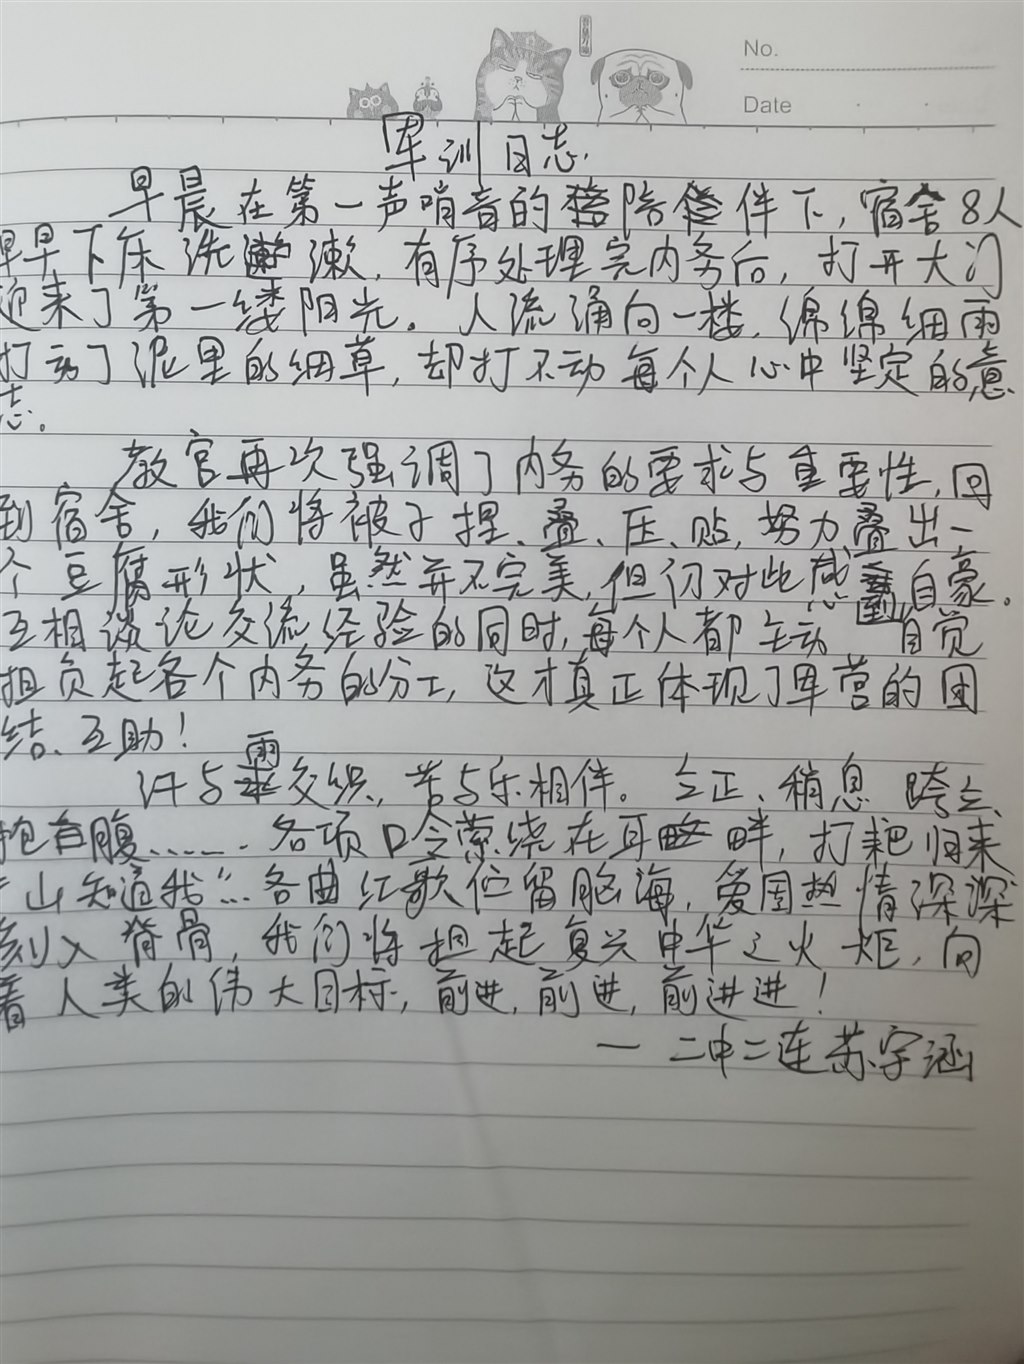 No.
Date
军训日志
早晨在第一声哨音的陪伴下，宿舍8人
早早下床洗漱，有序处理完内务后，打开大门
迎来了第一缕阳光。人流涌向一楼，绵绵细雨
打动了泥里的细草，却打不动每个人心中坚定的意
志。
教官再次强调了内务的要求与重要性，回
到宿舍，我们将被子捏、叠、压、贴，努力叠出一
个豆腐形状，虽然并不完美，但仍对此感到自豪。
互相谈论交流经验的同时，每个人都主动自觉
担负起各个内务的分工，这才真正体现了军营的团
结、互助！
汗与雨交织，苦与乐相伴。立正、稍息、跨立、
抱腹……各项口令萦绕在耳畔，打靶归来
山知道我"…各曲红歌伫留脑海，爱国热情深深
刻入脊骨，我们将担起复兴中华之火炬，向
着人类的伟大目标，前进，前进，前进进！
一二中二连苏宇涵